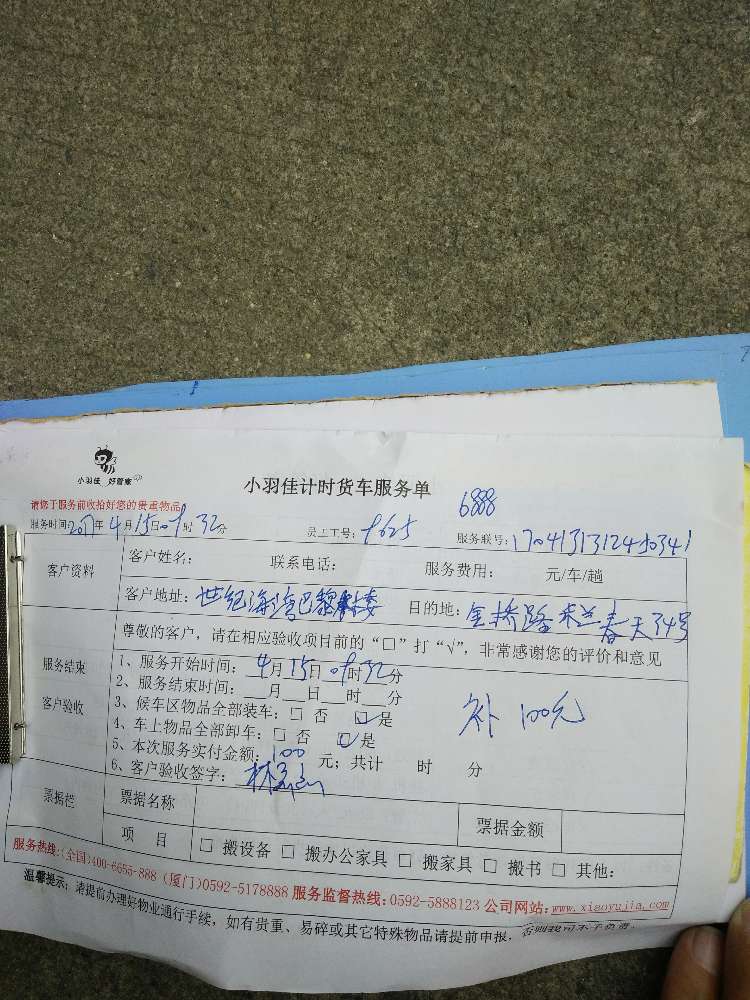 小羽佳 好管家
小羽佳计时货车服务单
6888
请您于服务前收拾好您的贵重物品
服务时间:2017年4月15日09时32分 员工工号:9625 服务联号:
客户资料 客户姓名: 联系电话: 服务费用: 元/车/趟
客户地址:世纪海湾巴黎 目的地:金桥路米兰春天34号
尊敬的客户，请在相应验收项目前的“□”打“√”，非常感谢您的评价和意见
服务结束
客户验收
1、服务开始时间:4月15日09时32分
2、服务结束时间:__月__日__时__分
3、候车区物品全部装车:□ 否 ☑是
补 100元
4、车上物品全部卸车:□ 否 ☑是
5、本次服务实付金额:100元；共计 时 分
6、客户验收签字:林
票据栏 票据名称 票据金额
项 目 □ 搬设备 □ 搬办公家具 □ 搬家具 □ 搬书 □ 其他:
服务热线:(全国)400-6655-888 (厦门)0592-5178888 服务监督热线:0592-5888123 公司网站:www.xiaoyujia.com
温馨提示:请提前办理好物业通行手续，如有贵重、易碎或其它特殊物品请提前申报，否则我司不予负责.